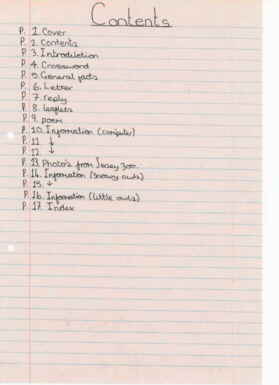 Contents
P. 1. Cover
P. 2. Contents
P. 3. Introduction
P. 4. Crossword
P. 5. General facts
P. 6. Letter
P. 7. reply
P. 8. leaflets
P. 9. poem
P. 10. Information (computer)
P. 11. ↓
P. 12. ↓
P. 13. Photo's from Jersey Zoo.
P. 14. Information (snowy owls)
P. 15. ↓
P. 16. Information (little owls)
P. 17. Index